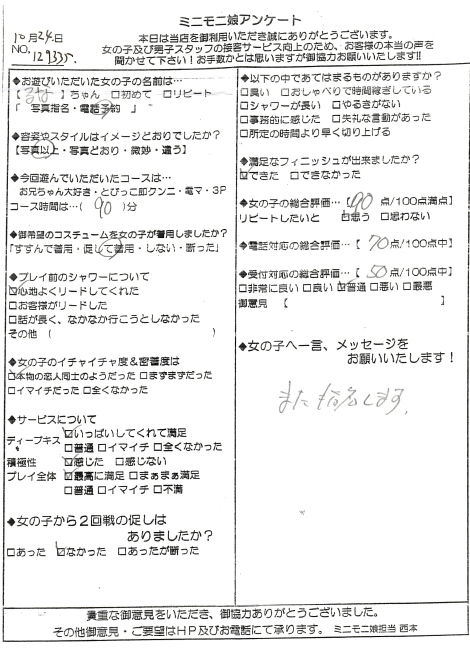 ミニモニ娘アンケート
10月24日
NO. 129335
本日は当店を御利用いただき誠にありがとうございます。
女の子及び男子スタッフの接客サービス向上のため、お客様の本当の声を
聞かせて下さい!お手数かとは思いますが御協力お願いいたします!!
◆お遊びいただいた女の子の名前は…
【るな】ちゃん □初めて □リピート
「 写真指名・電話予約 」
◆容姿やスタイルはイメージどおりでしたか?
【写真以上・写真どおり・微妙・違う】
◆今回遊でいただいたコースは…
お兄ちゃん大好き・とびっこ即クンニ・電マ・3P
コース時間は…( 90 )分
◆御希望のコスチュームを女の子が着用しましたか?
「すすんで着用・促して着用・しない・断った」
◆プレイ前のシャワーについて
☑心地よくリードしてくれた
□お客様がリードした
□話が長く、なかなか行こうとしなかった
その他 (
◆女の子のイチャイチャ度&密着度は
☑本物の恋人同士のようだった □まずまずだった
□イマイチだった □全くなかった
◆サービスについて
ディープキス ☑いっぱいしてくれて満足
□普通 □イマイチ □全くなかった
積極性 ☑感じた □感じない
プレイ全体 ☑最高に満足 □まぁまぁ満足
□普通 □イマイチ □不満
◆女の子から2回戦の促しは
ありましたか?
□あった ☑なかった □あったが断った
◆以下の中であてはまるものがありますか?
□臭い □おしゃべりで時間稼ぎしている
□シャワーが長い □やるきがない
□事務的に感じた □失礼な言動があった
□所定の時間より早く切り上げる
◆満足なフィニッシュが出来ましたか?
☑できた □できなかった
◆女の子の総合評価…【90 点/100点満点】
リピートしたいと ☑思う □思わない
◆電話対応の総合評価…【 70点/100点中】
◆受付対応の総合評価…【 50点/100点中】
□非常に良い □良い ☑普通 □悪い □最悪
御意見 【 】
◆女の子へ一言、メッセージを
お願いいたします!
また指名します。
貴重な御意見をいただき、御協力ありがとうございました。
その他御意見・ご要望はHP及びお電話にて承ります。 ミニモニ娘担当 西本